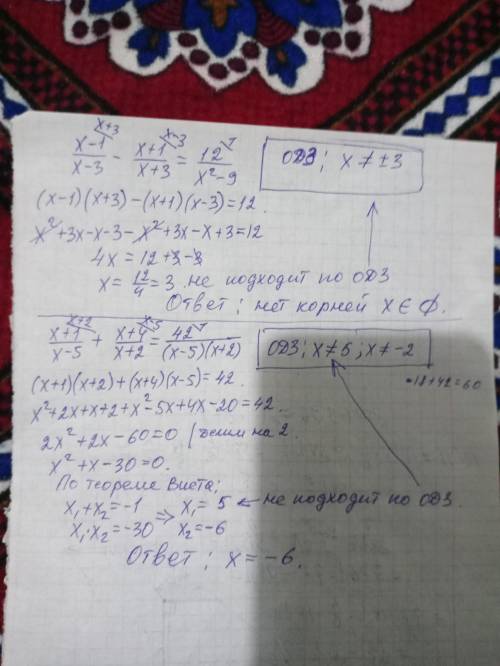 x+3 x-3
x-1/x-3 - x+1/x+3 = 12/x²-9 ОДЗ; x ≠ ±3
(x-1)(x+3)-(x+1)(x-3)=12.
x²+3x-x-3-x²+3x-x+3=12
4x = 12+3-3
x = 12/4 = 3. не подходит по ОДЗ
Ответ: нет корней x ∈ ∅.
x+2 x-5
x+1/x-5 + x+4/x+2 = 42/(x-5)(x+2) ОДЗ; x≠5; x≠-2
(x+1)(x+2)+(x+4)(x-5)=42. -18+42=60
x²+2x+x+2+x²-5x+4x-20=42.
2x²+2x-60=0 / делим на 2.
x²+x-30=0.
По теореме Виета;
x₁+x₂=-1 ⇒ x₁= 5 ← не подходит по ОДЗ.
x₁·x₂=-30 x₂=-6
Ответ: x = -6.